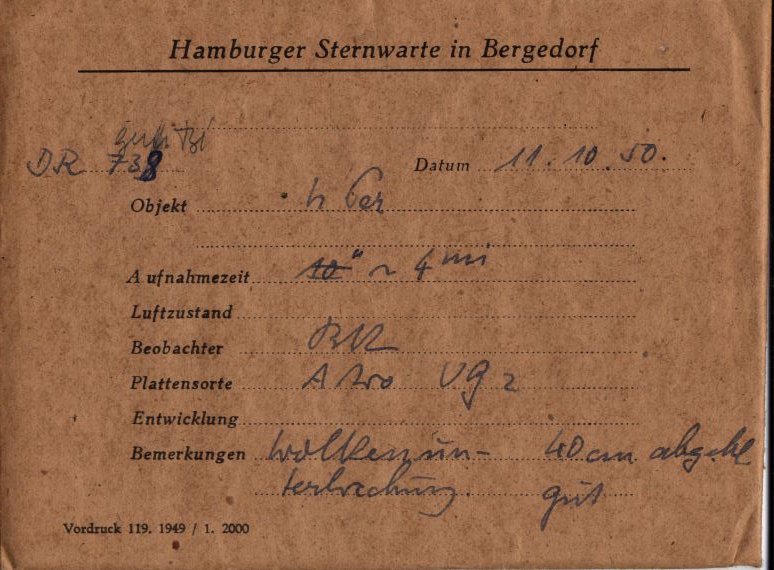 Hamburger Sternwarte in Bergedorf
DR 738
Datum 11. 10. 50.
Objekt h Per
Aufnahmezeit 10" ~ 4 mi
Luftzustand
Beobachter
Plattensorte Astro VG 2
Entwicklung
Bemerkungen Wolkenun- 40 cm
terbrechung. gut
Vordruck 119. 1949 / 1. 2000